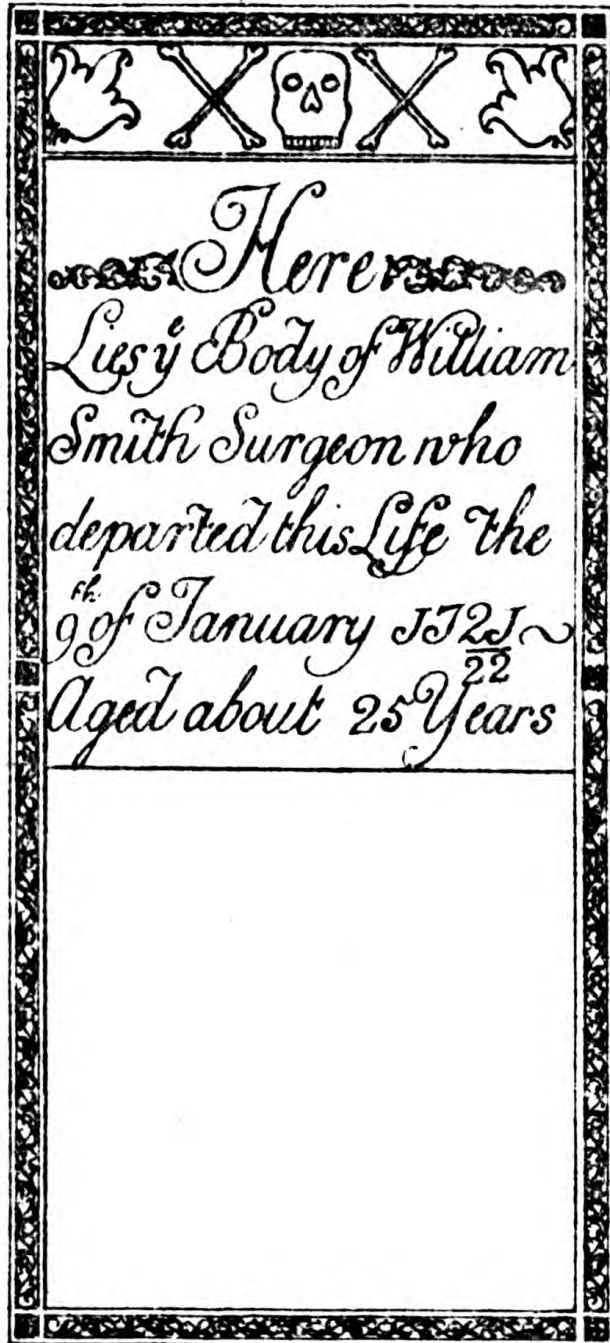 Here
Lies yᵉ Body of William
Smith Surgeon who
departed this Life the
9ᵗʰ of January J72J~
22
Aged about 25 Years